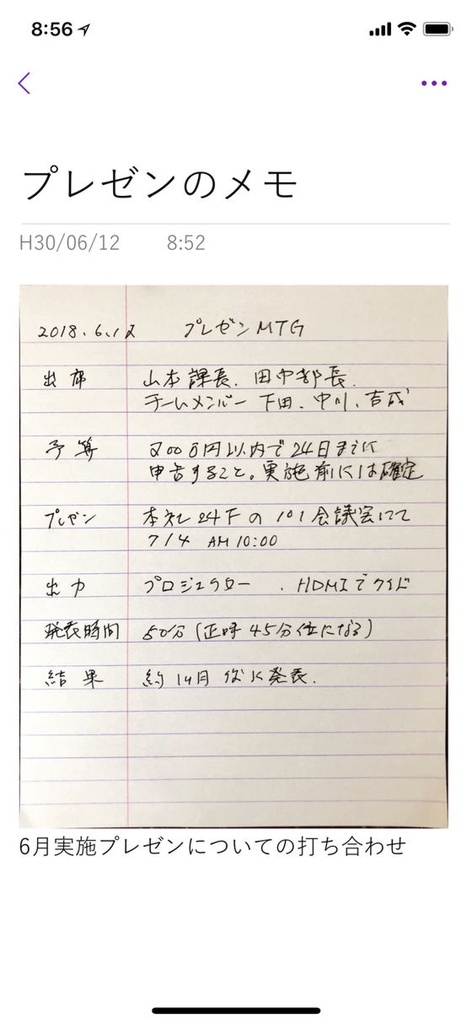 8:56
プレゼンのメモ
H30/06/12 8:52
2018.6.12 プレゼンMTG
出席 山本課長. 田中部長.
チームメンバー 下田. 中川. 吉成
予算 200万円以内で24日までに
申告すること。実施前には確定
プレゼン 本社24Fの101会議室にて
7/4 AM 10:00
出力 プロジェクター . HDMIでワイド
発表時間 50分(正味45分位になる)
結果 約1ヶ月後に発表.
6月実施プレゼンについての打ち合わせ